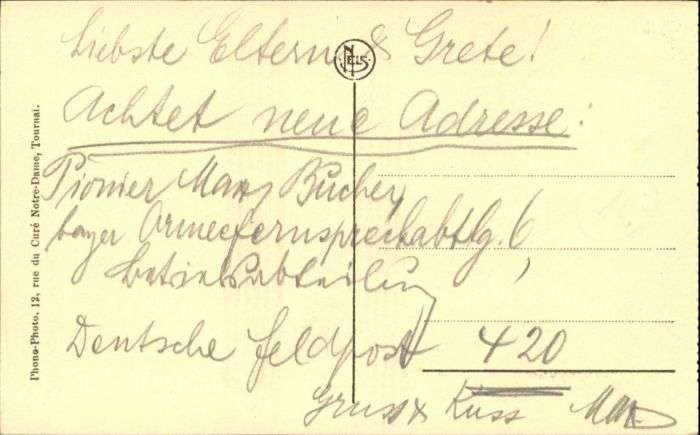 Liebste Eltern & Grete!
NELS
Achtet neue Adresse:
Pionier Max Bucher,
bayer Armeefernsprechabtlg. 6
Betriebsabteilung
Deutsche Feldpost 420
Gruss & Kuss Max
Phono-Photo. 12, rue du Curé Notre-Dame, Tournai.